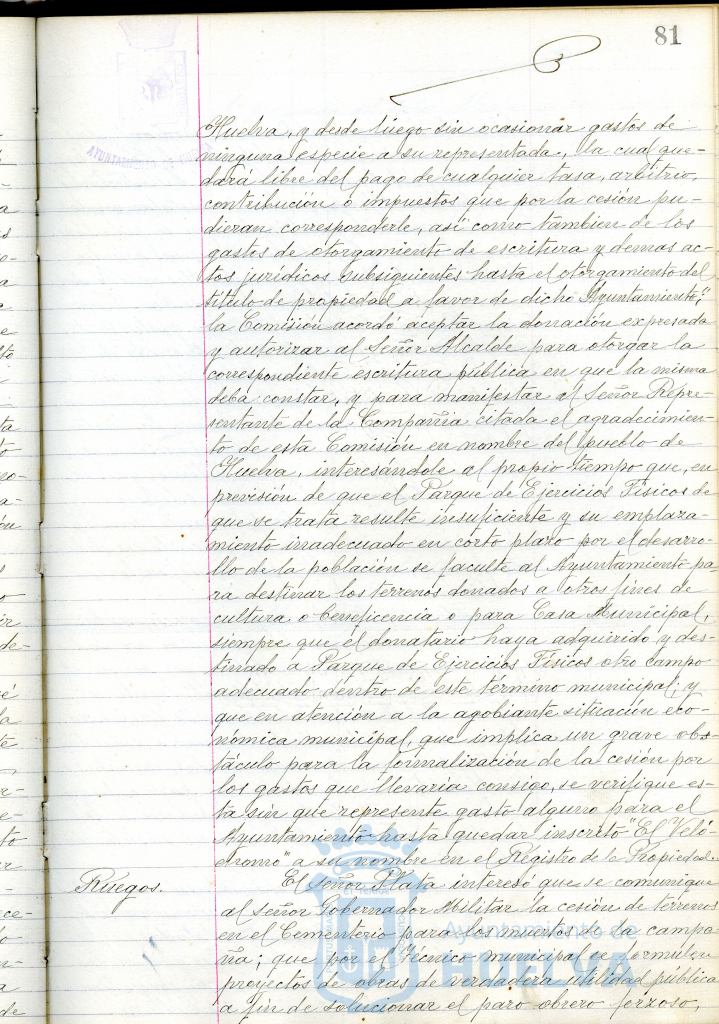 81
AYUNTAMIENTO DE
Huelva, y desde luego sin ocasionar gastos de
ninguna especie a su representada, la cual que-
dará libre del pago de cualquier tasa, arbitrio,
contribución o impuestos que por la cesión pu-
dieran corresponderle, así como tambien de los
gastos de otorgamiento de escritura y demas ac-
tos jurídicos subsiguientes hasta el otorgamiento del
título de propiedad a favor de dicho Ayuntamiento",
la Comisión acordó aceptar la donación expresada
y autorizar al Señor Alcalde para otorgar la
correspondiente escritura pública en que la misma
deba constar, y para manifestar al Señor Repre-
sentante de la Compañia citada el agradecimien-
to de esta Comisión en nombre del pueblo de
Huelva, interesándole al propio tiempo que, en
previsión de que el Parque de Ejercicios Físicos de
que se trata resulte insuficiente y su emplaza-
miento inadecuado en corto plazo por el desarro-
llo de la población se faculte al Ayuntamiento pa-
ra destinar los terrenos donados a otros fines de
cultura o beneficencia o para Casa Municipal,
siempre que el donatario haya adquirido y des-
tinado a Parque de Ejercicios Físicos otro campo
adecuado dentro de este término municipal; y
que en atención a la agobiante situación eco-
nómica municipal, que implica un grave obs-
táculo para la formalización de la cesión por
los gastos que llevaria consigo, se verifique es-
ta sin que represente gasto alguno para el
Ayuntamiento hasta quedar inscrito "El Veló-
dromo" a su nombre en el Registro de la Propiedad.
Ruegos. El señor Plata interesó que se comunique
al señor Gobernador Militar la cesión de terrenos
en el Cementerio para los muertos de la campa-
ña; que por el Técnico municipal se formulen
proyectos de obras de verdadera utilidad pública
a fin de solucionar el paro obrero forzoso,
Ayuntamiento de
HUELVA